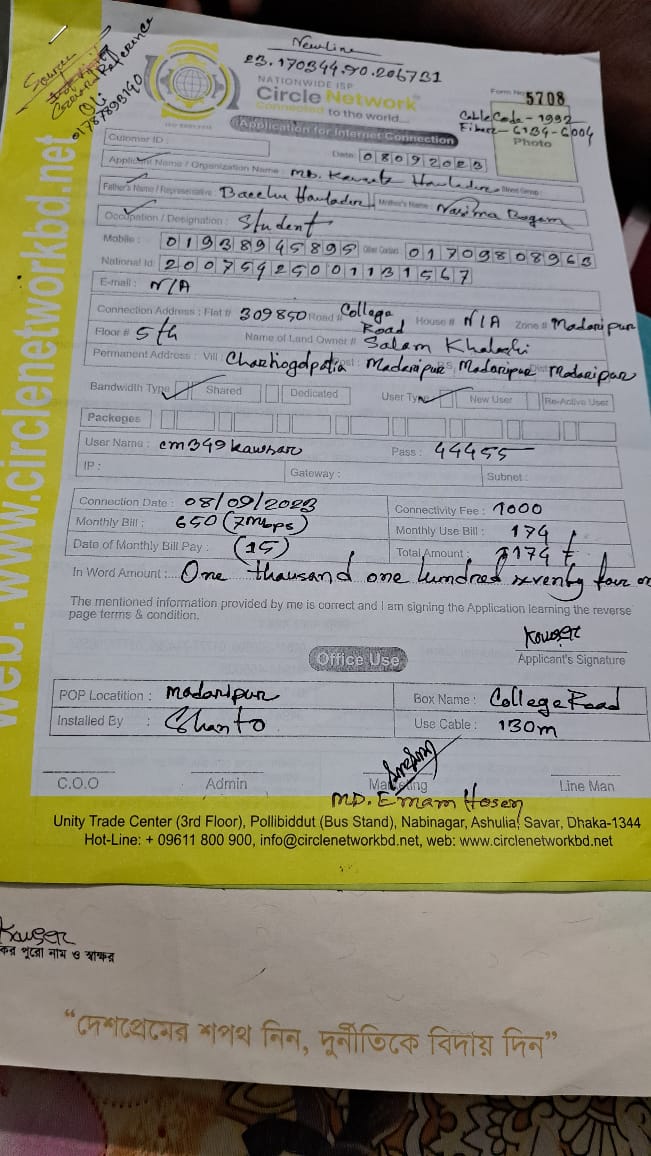 Newline
23.170344.90.206731
Source
Reference
Oli
01787898140
NATIONWIDE ISP
Circle Network
connected to the world...
ISO 9001:2015
Form No 5708
Cable Code - 1992
Fiber - 6184-6004
Photo
Application for Internet Connection
Cutomer ID :
Date: 08092023
Applicant Name / Organization Name : MD. Howlader Blood Group :
Father's Name / Representative : Bacchu Howlader Mother's Name : Nasima Begam
Occupation / Designation : Student
Mobile : 01938945895 Other Contact 01709808963
National Id: 20075425001131567
E-mail : N/A
Connection Address : Flat # 309850 Road # College Road House # N/A Zone # Madaripur
Floor # 5th Name of Land Owner # Salam Khalashi
Permanent Address : Vill : Post : Madaripur P.S Madaripur Dist Madaripur
Bandwidth Type Shared Dedicated User Type New User Re-Active User
Packeges
User Name : cm349kawsar Pass : 44455
IP : Gateway : Subnet :
Connection Date : 08/09/2023 Connectivity Fee : 1000
Monthly Bill : 650 (7mbps) Monthly Use Bill : 174
Date of Monthly Bill Pay : (15) Total Amount : 1174
In Word Amount : One thousand one hundred seventy four on
The mentioned information provided by me is correct and I am signing the Application learning the reverse
page terms & condition.
Kouser
Applicant's Signature
Office Use
POP Locatition : Madaripur Box Name : College Road
Installed By : Shanto Use Cable : 130m
C.O.O Admin Marketing Line Man
MD. Emam Hosen
Unity Trade Center (3rd Floor), Pollibiddut (Bus Stand), Nabinagar, Ashulia, Savar, Dhaka-1344
Hot-Line: + 09611 800 900, info@circlenetworkbd.net, web: www.circlenetworkbd.net
web: www.circlenetworkbd.net
Kouser
কর পুরো নাম ও স্বাক্ষর
“দেশপ্রেমের শপথ নিন, দুর্নীতিকে বিদায় দিন”